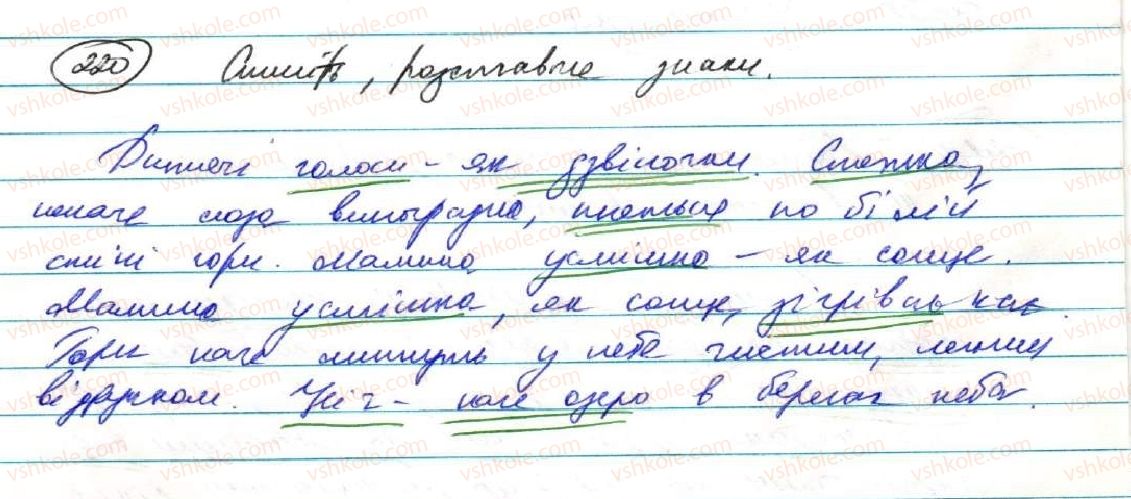 220 Спишіть, розставивши знаки.
Дитячі голоси - як дзвіночки. Стежка,
неначе лоза винограду, пнеться по білій
спині гори. Мамина усмішка - як сонце.
Мамина усмішка, як сонце, зігріває нас.
Гори наче линуть у небо чистим, легким
віддихом. Ніч - наче озеро в берегах неба.
vshkole.com